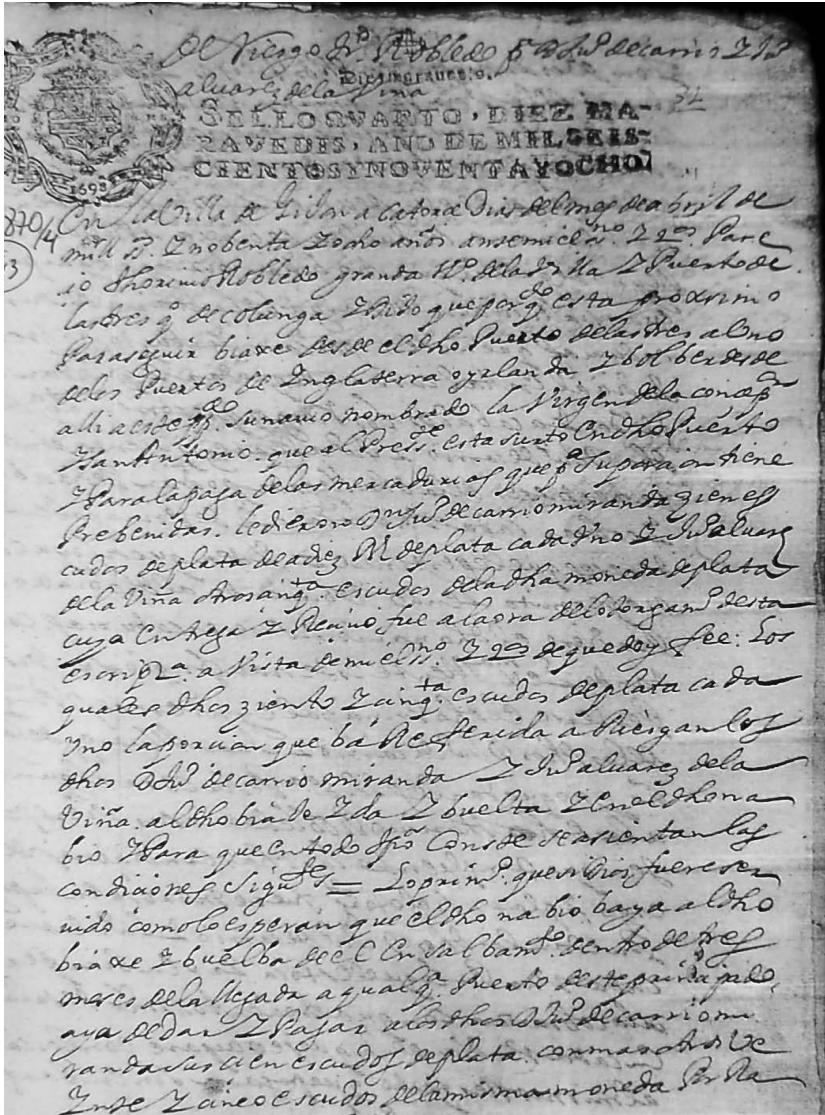 de Riesgo Jº Robledo Dn Juº de carrio y Juº
alvarez de la Viña
Diez maravedis.
34
SELLO QVARTO, DIEZ MA-
RAVEDIS, ANO DE MIL SEIS-
CIENTOS Y NOVENTA Y OCHO.
1698
870/4
3
En la Villa de Gijon a catorce dias del mes de abril de
mill y nobenta y ocho años ante mi el ssno y tos Pare
cio Robledo granda Vº de la Villa y Puerto de
lastres qº de colunga y Dijo que por qdo esta proxsimo
Para seguir biaxe desde el dho Puerto de lastres a Uno
de los Puertos de Ynglaterra o yrlanda y bolber desde
alli a este su navio nombrado la Virgen de la concepon
y san Antonio que al Presste esta surto En dho Puerto
y Para la paga de las mercadurias que tiene
Prebenidas le dieron Dn Juº de carrio miranda zien es
cudos de plata de a diez Rs de plata cada Vno y Juº alvarez
de la Viña otros cinqta escudos de la dha moneda de plata
cuya Entrega y Recivo fue a la ora del otorgamto desta
escripra a Vista de mi el ssno y tos de que doy fee: Los
quales dhos ziento y cinqta escudos de plata cada
Vno la porcion que ba Referida a Riesgan los
dhos D Juº de carrio miranda y Juº alvarez de la
Viña al dho biaxe Yda y buelta y En el dho na
bio y Para que En todo tpo Conste se asientan las
condiciones Sigutes = Lo primº que si Dios fuere ser
vido como lo esperan que el dho nabio baya al dho
biaxe y buelba de el En salbamto dentro de tres
meses de la llegada a qualqra Puerto deste principado,
aya de dar y Pagar a los dhos D Juº de carrio mi
randa sus cien escudos de plata con mas otros Ve
ynte y cinco escudos de la misma moneda Por Ra